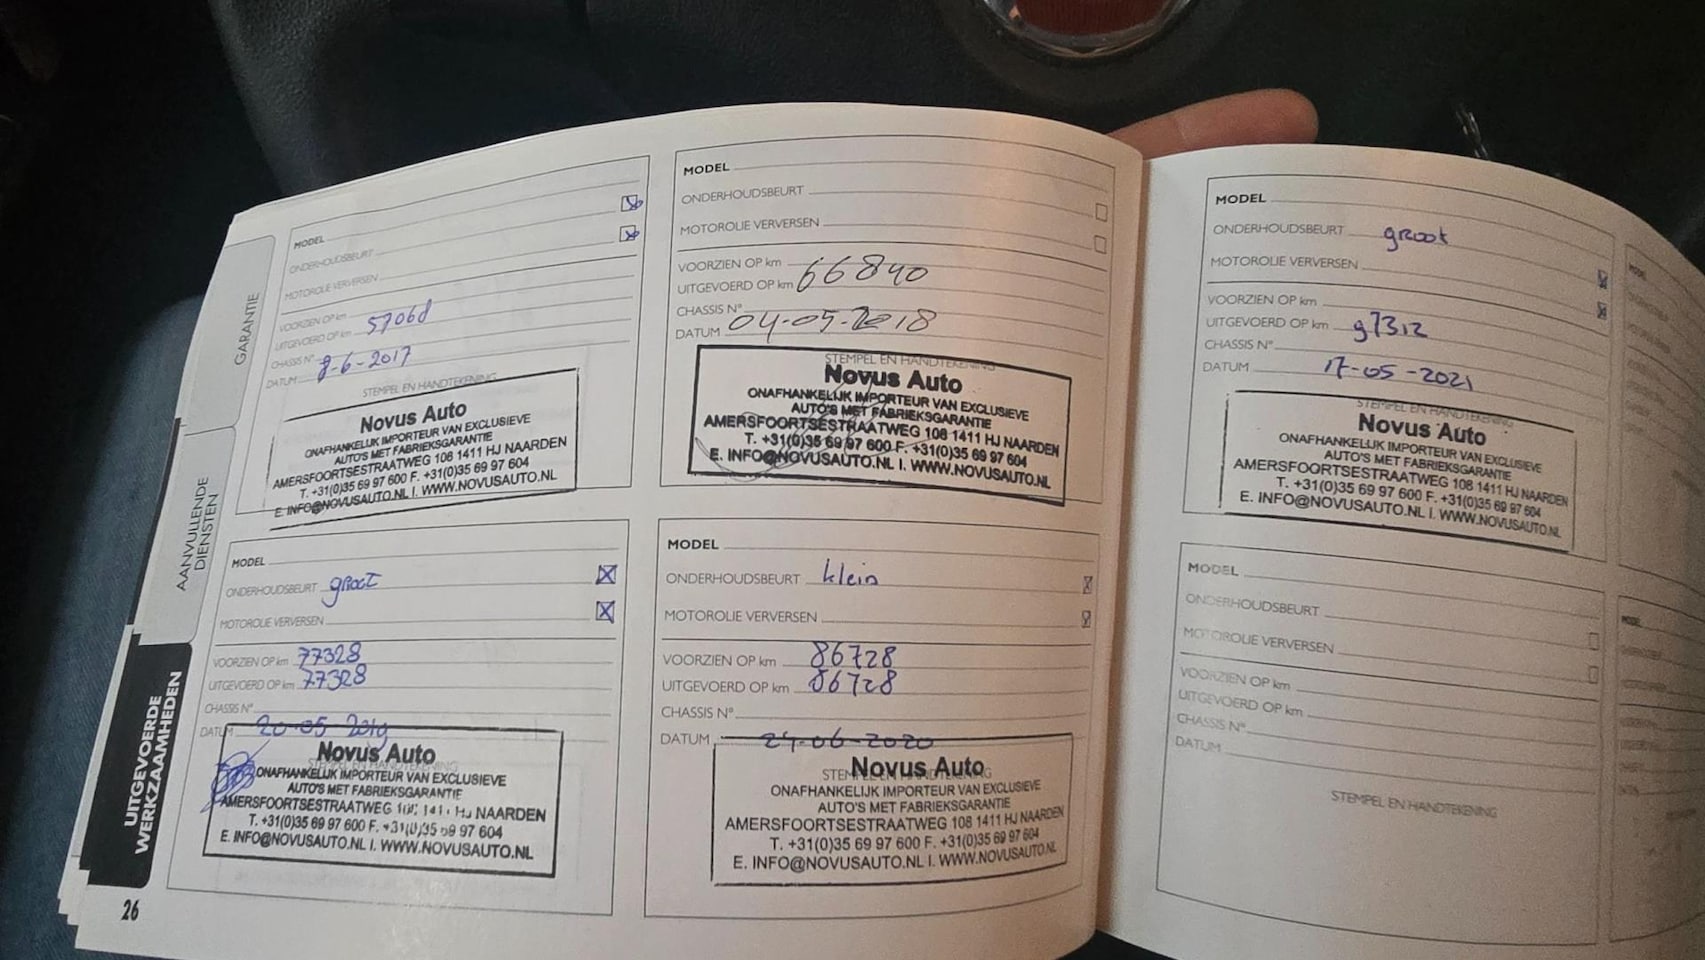 GARANTIE
AANVULLENDE
DIENSTEN
UITGEVOERDE
WERKZAAMHEDEN
26
MODEL
ONDERHOUDSBEURT
MOTOROLIE VERVERSEN
VOORZIEN OP km
UITGEVOERD OP km 57068
CHASSIS N°
DATUM 8-6-2017
STEMPEL EN HANDTEKENING
Novus Auto
ONAFHANKELIJK IMPORTEUR VAN EXCLUSIEVE
AUTO'S MET FABRIEKSGARANTIE
AMERSFOORTSESTRAATWEG 108 1411 HJ NAARDEN
T. +31(0)35 69 97 600 F. +31(0)35 69 97 604
E. INFO@NOVUSAUTO.NL I. WWW.NOVUSAUTO.NL
MODEL
ONDERHOUDSBEURT
MOTOROLIE VERVERSEN
VOORZIEN OP km
UITGEVOERD OP km 66840
CHASSIS N°
DATUM 04-05-2018
STEMPEL EN HANDTEKENING
Novus Auto
ONAFHANKELIJK IMPORTEUR VAN EXCLUSIEVE
AUTO'S MET FABRIEKSGARANTIE
AMERSFOORTSESTRAATWEG 108 1411 HJ NAARDEN
T. +31(0)35 69 97 600 F. +31(0)35 69 97 604
E. INFO@NOVUSAUTO.NL I. WWW.NOVUSAUTO.NL
MODEL
ONDERHOUDSBEURT groot
MOTOROLIE VERVERSEN
VOORZIEN OP km 77328
UITGEVOERD OP km 77328
CHASSIS N°
DATUM 20-05 2019
STEMPEL EN HANDTEKENING
Novus Auto
ONAFHANKELIJK IMPORTEUR VAN EXCLUSIEVE
AUTO'S MET FABRIEKSGARANTIE
AMERSFOORTSESTRAATWEG 108 1411 HJ NAARDEN
T. +31(0)35 69 97 600 F. +31(0)35 69 97 604
E. INFO@NOVUSAUTO.NL I. WWW.NOVUSAUTO.NL
MODEL
ONDERHOUDSBEURT klein
MOTOROLIE VERVERSEN
VOORZIEN OP km 86728
UITGEVOERD OP km 86728
CHASSIS N°
DATUM 24-06-2020
STEMPEL EN HANDTEKENING
Novus Auto
ONAFHANKELIJK IMPORTEUR VAN EXCLUSIEVE
AUTO'S MET FABRIEKSGARANTIE
AMERSFOORTSESTRAATWEG 108 1411 HJ NAARDEN
T. +31(0)35 69 97 600 F. +31(0)35 69 97 604
E. INFO@NOVUSAUTO.NL I. WWW.NOVUSAUTO.NL
MODEL
ONDERHOUDSBEURT groot
MOTOROLIE VERVERSEN
VOORZIEN OP km
UITGEVOERD OP km 97312
CHASSIS N°
DATUM 17-05-2021
STEMPEL EN HANDTEKENING
Novus Auto
ONAFHANKELIJK IMPORTEUR VAN EXCLUSIEVE
AUTO'S MET FABRIEKSGARANTIE
AMERSFOORTSESTRAATWEG 108 1411 HJ NAARDEN
T. +31(0)35 69 97 600 F. +31(0)35 69 97 604
E. INFO@NOVUSAUTO.NL I. WWW.NOVUSAUTO.NL
MODEL
ONDERHOUDSBEURT
MOTOROLIE VERVERSEN
VOORZIEN OP km
UITGEVOERD OP km
CHASSIS N°
DATUM
STEMPEL EN HANDTEKENING
MODEL
MODEL